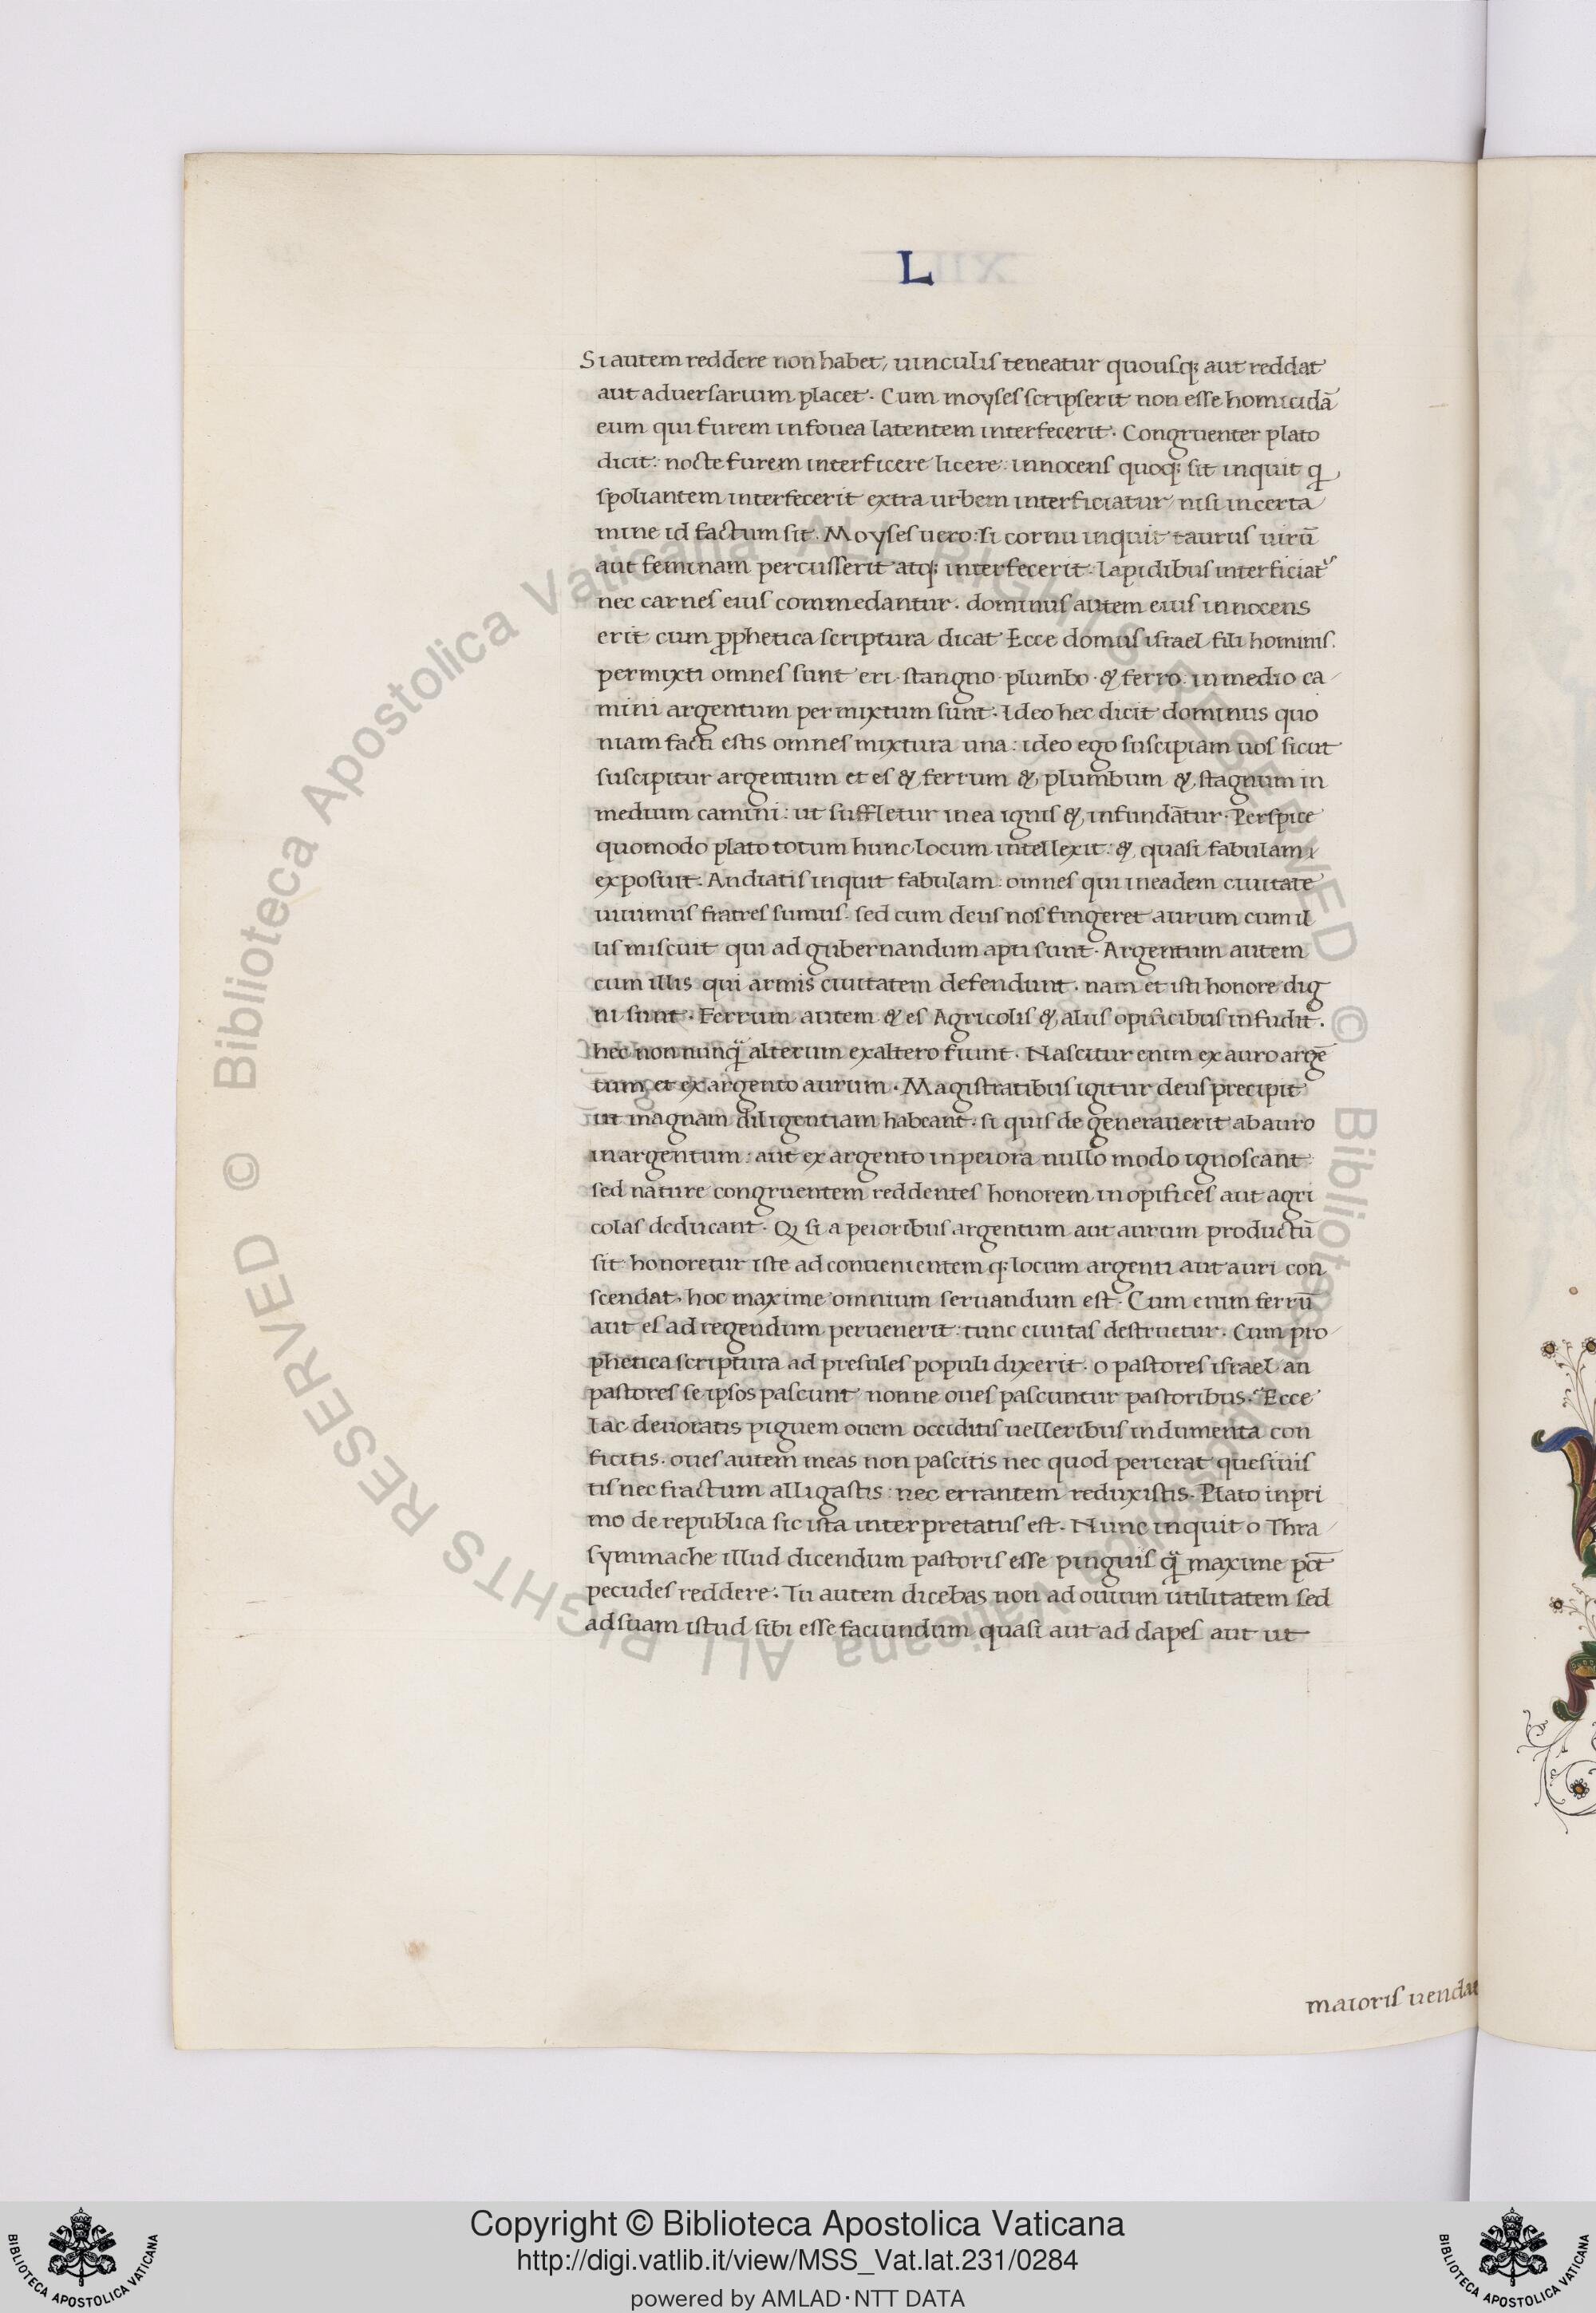 L
Si autem reddere non habet, uinculis teneatur quousq; aut reddat
aut aduersarium placet. Cum moyses scripserit non esse homicidā
eum qui furem in fouea latentem interfecerit. Congruenter plato
dicit: nocte furem interficere licere: innocens quoq; sit inquit qͥ
spoliantem interfecerit extra urbem interficiatur nisi in certa
mine id factum sit. Moyses uero: si cornu inquit taurus uirū
aut feminam percusserit atq; interfecerit: lapidibus interficiat᷒
nec carnes eius commedantur. dominus autem eius innocens
erit cum ꝓphetica scriptura dicat Ecce domus israel fili hominis.
permixti omnes sunt eri stangno plumbo & ferro: in medio ca
mini argentum permixtum sunt. Ideo hec dicit dominus quo
niam facti estis omnes mixtura una: ideo ego suscipiam uos sicut
suscipitur argentum et es & ferrum & plumbum & stagnum in
medium camini: ut suffletur in ea ignis & infundātur. Perspice
quomodo plato totum hunc locum intellexit: & quasi fabulam
exposuit. Audiatis inquit fabulam: omnes qui in eadem ciuitate
uiuimus fratres sumus: sed cum deus nos fingeret aurum cum il
lis miscuit qui ad gubernandum apti sunt. Argentum autem
cum illis qui armis ciuitatem defendunt. nam et isti honore dig
ni sunt. Ferrum autem & es Agricolis & aliis opificibus infudit.
hec non nunqͣ̄ alterum ex altero fiunt. Nascitur enim ex auro argē
tum et ex argento aurum. Magistratibus igitur deus precipit
ut magnam diligentiam habeant. si quis degenerauerit ab auro
in argentum: aut ex argento in peiora nullo modo ignoscant:
sed nature congruentem reddentes honorem in opifices aut agri
colas deducant. Q si a peioribus argentum aut aurum productū
sit honoretur iste ad conuenientem q; locum argenti aut auri con
scendat. hoc maxime omnium seruandum est. Cum enim ferrū
aut es ad regendum peruenerit: tunc ciuitas destruetur. Cum pro
phetica scriptura ad presules populi dixerit. o pastores israel an
pastores se ipsos pascunt nonne oues pascuntur pastoribus. Ecce
lac deuoratis piguem ouem occiditis uelleribus indumenta con
ficitis. oues autem meas non pascitis nec quod perierat quesiuis
tis nec fractum alligastis: nec errantem reduxistis. Plato in pri
mo de republica sic ista interpretatus est. Nunc inquit o Thra
symmache illud dicendum pastoris esse pinguis qͣ̄ maxime pōt
pecudes reddere. Tu autem dicebas non ad ouium utilitatem sed
ad suam istud sibi esse faciundum quasi aut ad dapes aut ut
maioris uendat
© Biblioteca Apostolica Vaticana ALL RIGHTS RESERVED © Biblioteca Apostolica Vaticana ALL RIGHTS RESERVED
Copyright © Biblioteca Apostolica Vaticana
http://digi.vatlib.it/view/MSS_Vat.lat.231/0284
powered by AMLAD·NTT DATA
BIBLIOTECA APOSTOLICA VATICANA
BIBLIOTECA APOSTOLICA VATICANA